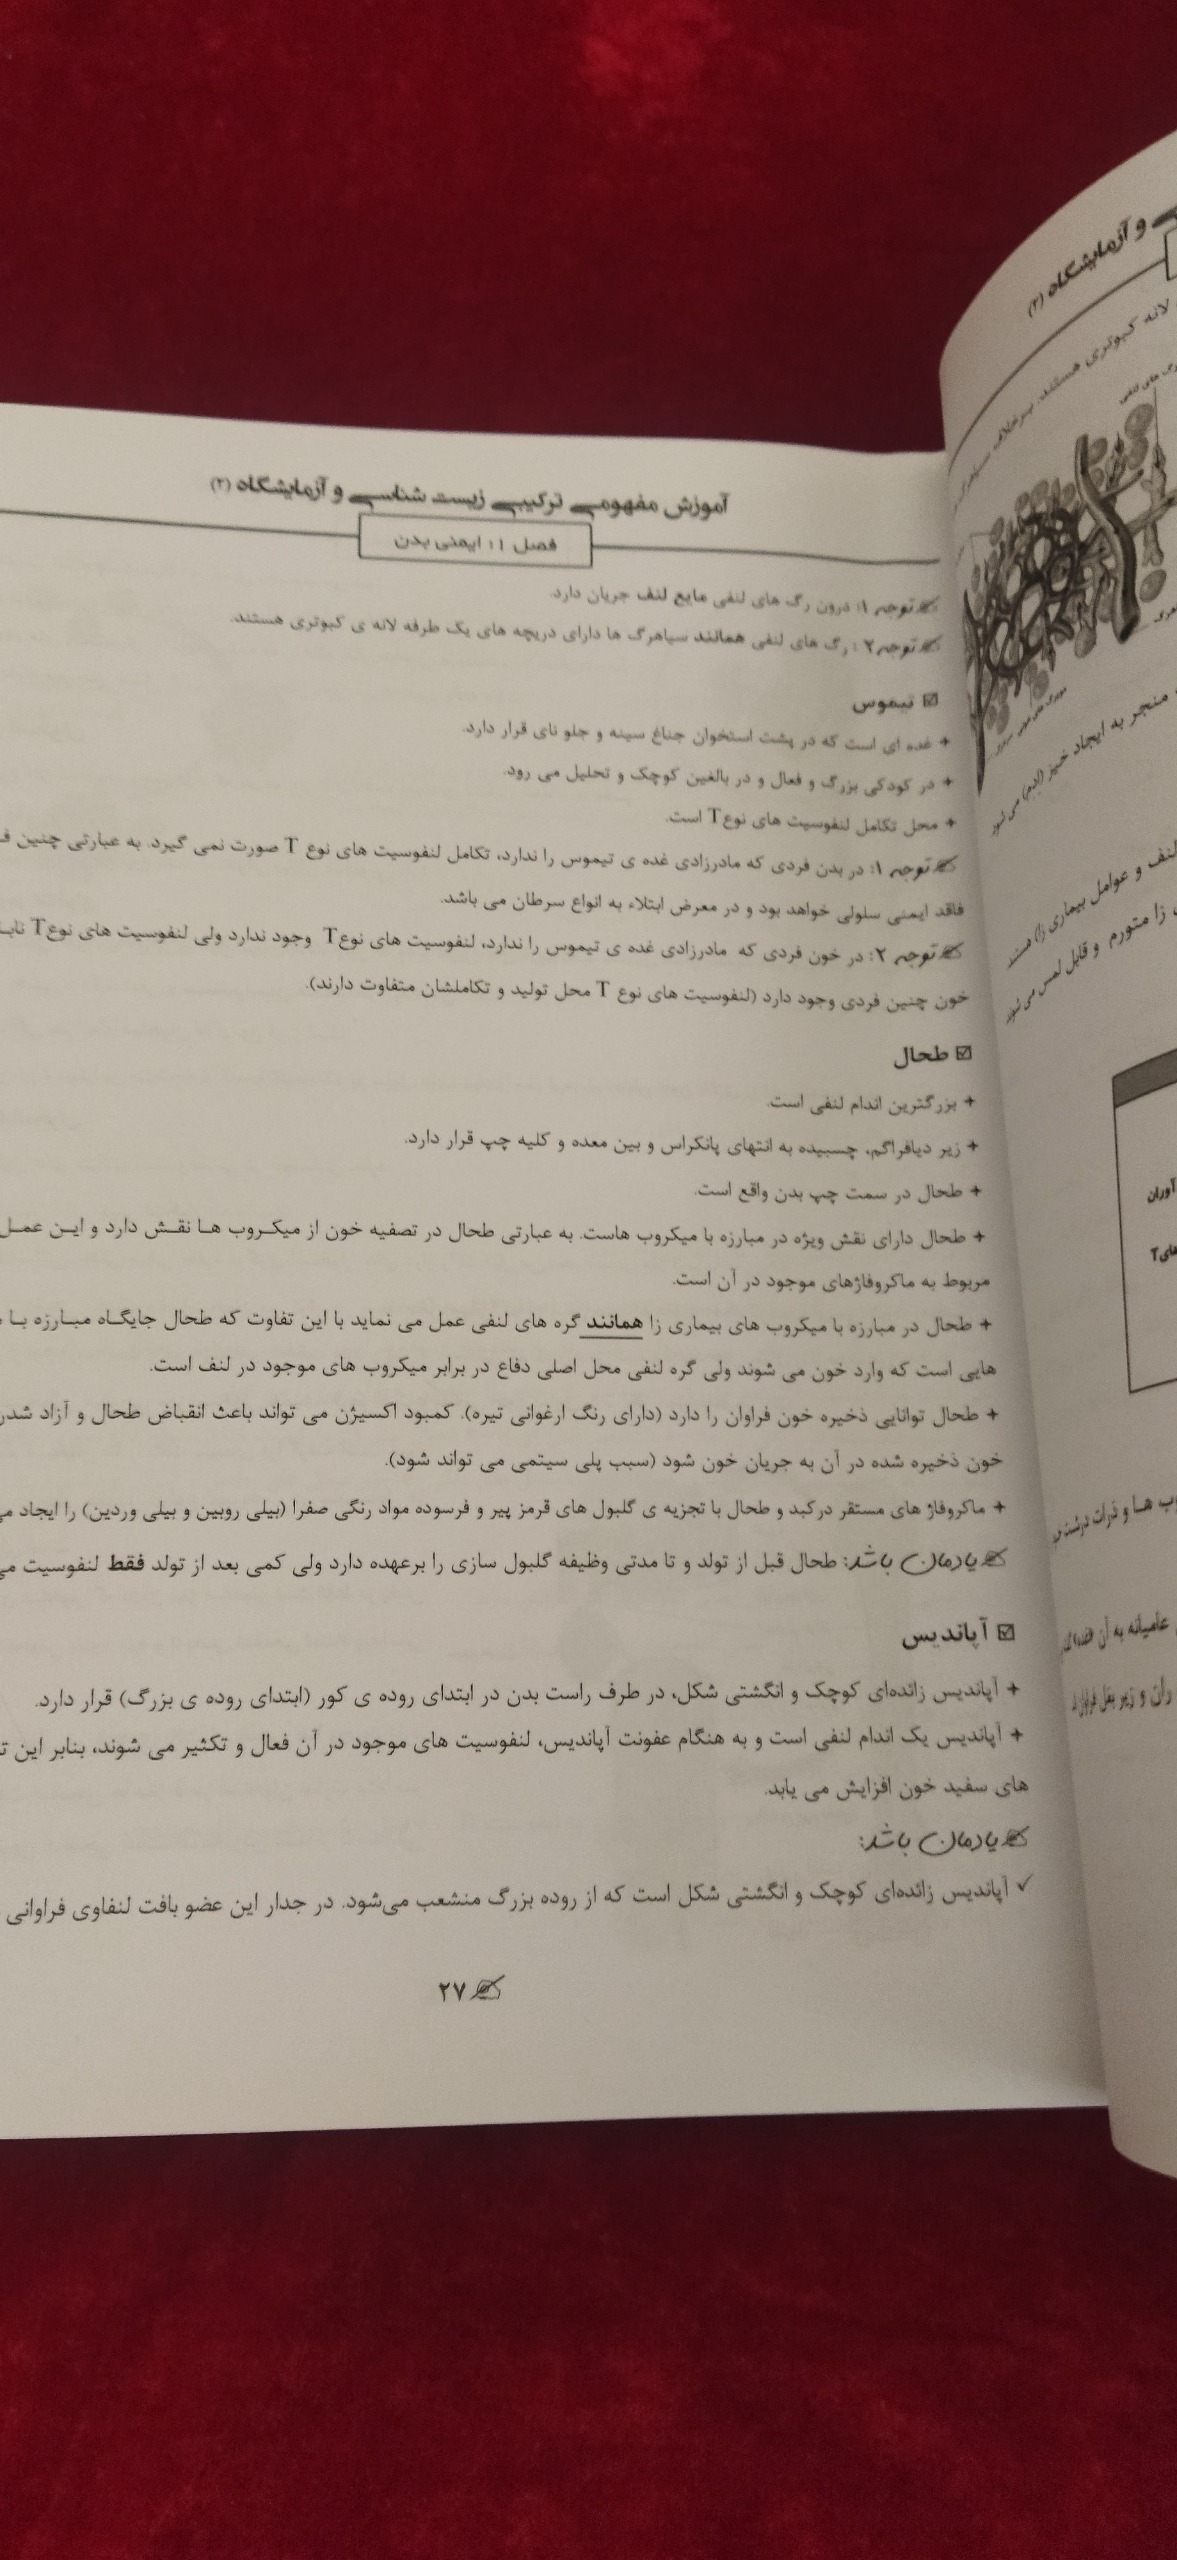 آموزش مفهومی ترکیبی زیست شناسی و آزمایشگاه (۲)
فصل ۱: ایمنی بدن
توجه ۱: درون رگ های لنفی مایع لنف جریان دارد.
توجه ۲: رگ های لنفی همانند سیاهرگ ها دارای دریچه های یک طرفه لانه ی کبوتری هستند.
☑ تیموس
+ غده ای است که در پشت استخوان جناغ سینه و جلو نای قرار دارد.
+ در کودکی بزرگ و فعال و در بالغین کوچک و تحلیل می رود.
+ محل تکامل لنفوسیت های نوع T است.
توجه ۱: در بدن فردی که مادرزادی غده ی تیموس را ندارد، تکامل لنفوسیت های نوع T صورت نمی گیرد. به عبارتی چنین
فاقد ایمنی سلولی خواهد بود و در معرض ابتلاء به انواع سرطان می باشد.
توجه ۲: در خون فردی که مادرزادی غده ی تیموس را ندارد، لنفوسیت های نوع T وجود ندارد ولی لنفوسیت های نوع T
خون چنین فردی وجود دارد (لنفوسیت های نوع T محل تولید و تکاملشان متفاوت دارند).
☑ طحال
+ بزرگترین اندام لنفی است.
+ زیر دیافراگم، چسبیده به انتهای پانکراس و بین معده و کلیه چپ قرار دارد.
+ طحال در سمت چپ بدن واقع است.
+ طحال دارای نقش ویژه در مبارزه با میکروب هاست. به عبارتی طحال در تصفیه خون از میکروب ها نقش دارد و این عمل
مربوط به ماکروفاژهای موجود در آن است.
+ طحال در مبارزه با میکروب های بیماری زا همانند گره های لنفی عمل می نماید با این تفاوت که طحال جایگاه مبارزه با
هایی است که وارد خون می شوند ولی گره لنفی محل اصلی دفاع در برابر میکروب های موجود در لنف است.
+ طحال توانایی ذخیره خون فراوان را دارد (دارای رنگ ارغوانی تیره). کمبود اکسیژن می تواند باعث انقباض طحال و آزاد شدن
خون ذخیره شده در آن به جریان خون شود (سبب پلی سیتمی می تواند شود).
+ ماکروفاژ های مستقر درکبد و طحال با تجزیه ی گلبول های قرمز پیر و فرسوده مواد رنگی صفرا (بیلی روبین و بیلی وردین) را ایجاد
یادمان باشد: طحال قبل از تولد و تا مدتی وظیفه گلبول سازی را برعهده دارد ولی کمی بعد از تولد فقط لنفوسیت
☑ آپاندیس
+ آپاندیس زائده‌ای کوچک و انگشتی شکل، در طرف راست بدن در ابتدای روده ی کور (ابتدای روده ی بزرگ) قرار دارد.
+ آپاندیس یک اندام لنفی است و به هنگام عفونت آپاندیس، لنفوسیت های موجود در آن فعال و تکثیر می شوند، بنابر این
های سفید خون افزایش می یابد.
یادمان باشد:
✓ آپاندیس زائده‌ای کوچک و انگشتی شکل است که از روده بزرگ منشعب می‌شود. در جدار این عضو بافت لنفاوی فراوانی
۲۷
و آزمایشگاه (۲)
لانه کبوتری هستند. برخلاف
منجر به ایجاد خیز (ادم) می شود
لنف و عوامل بیماری زا) هستند
زا متورم و قابل لمس می شوند
آوران
های T
ها و ذرات درشت
عامیانه به آن
ران و زیر بغل